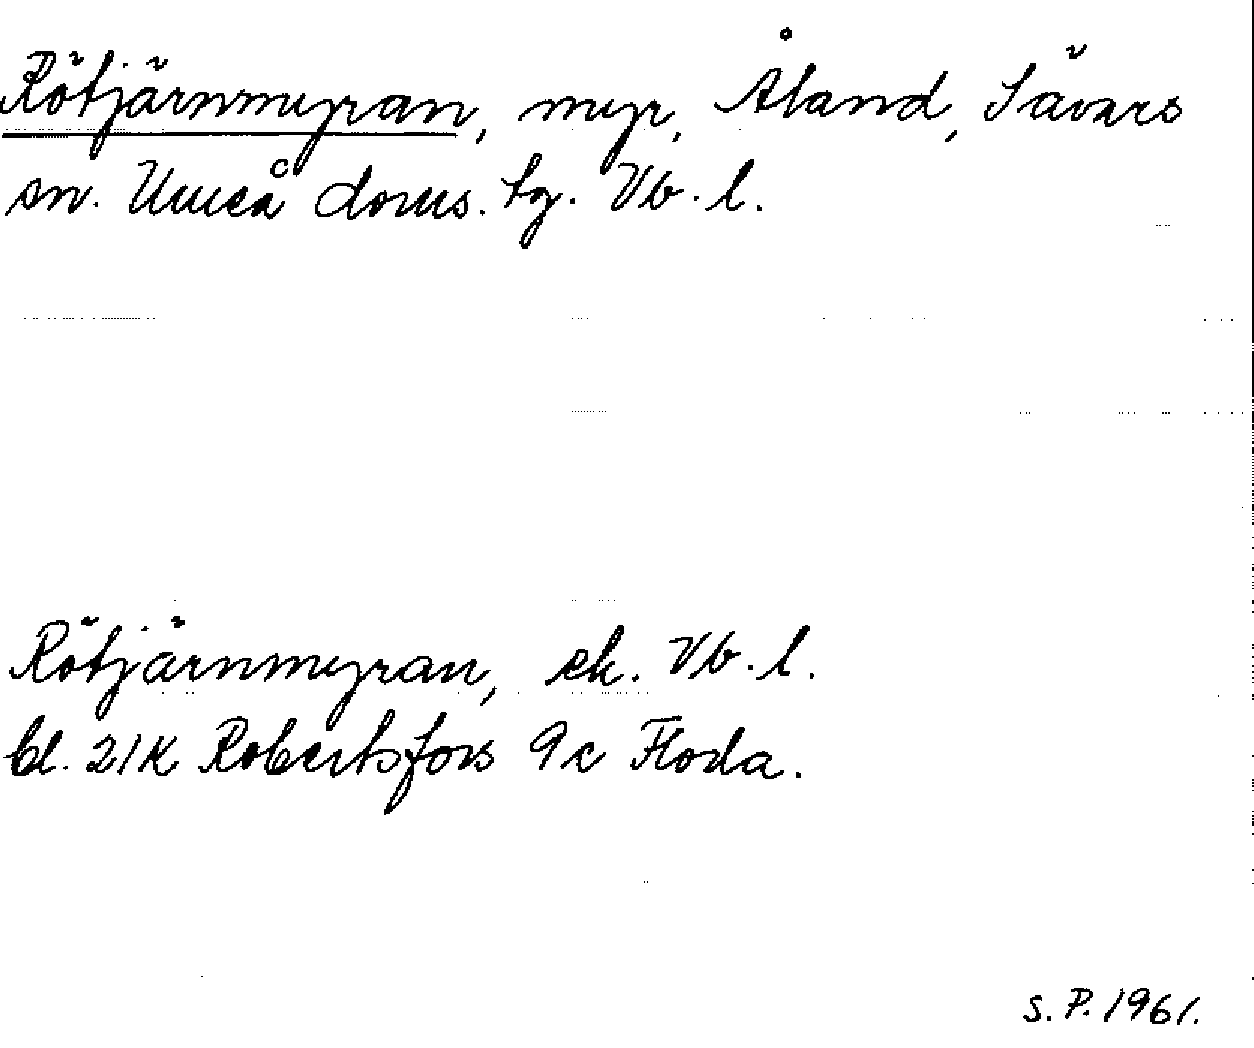 Rötjärnmyran, myr, Åland, Sävars
sn. Umeå doms. tg. Vb. l.
Rötjärnmyran, ek. Vb. l.
bl. 21K Robertsfors 9c Floda.
S. P. 1961.